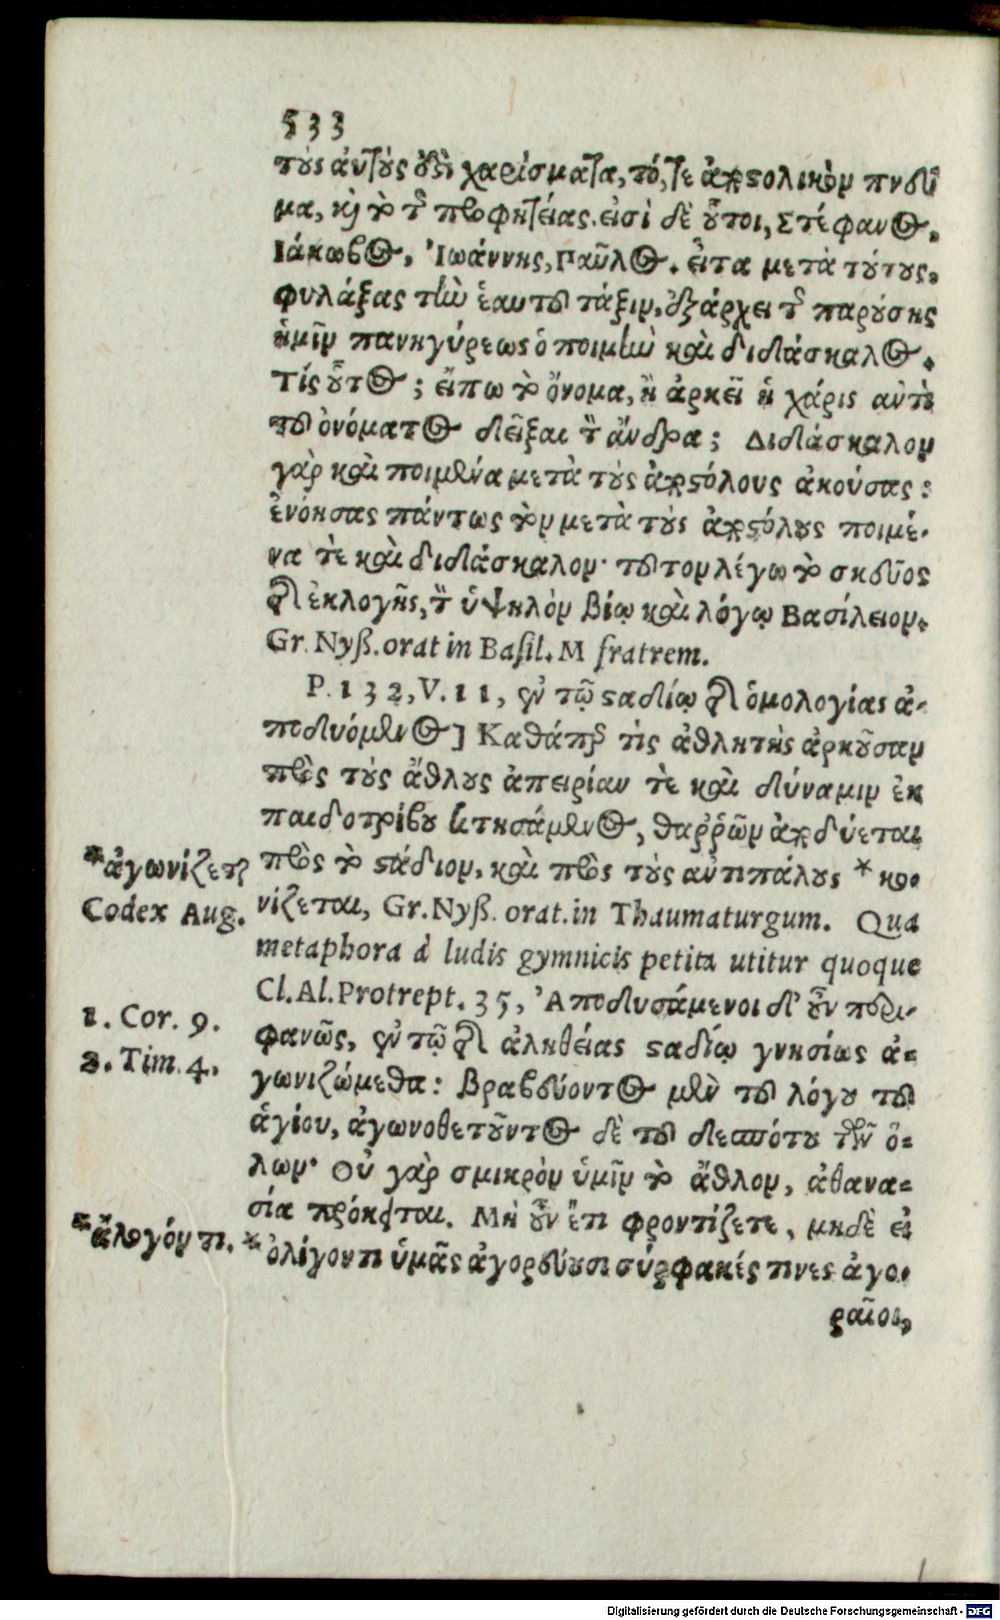 533
τοὺς αὐτοὺς δύο χαρίσματα, τό, τε ἀποστολικὸν πνεῦ
μα, καὶ τὸ τῆς προφητείας. εἰσὶ δὲ οὗτοι, Στέφανος,
Ιάκωβος, Ἰωάννης, Παῦλος. εἶτα μετὰ τούτους,
φυλάξας τὴν ἑαυτοῦ τάξιν, ἐξάρχει τῆς παρούσης
ἡμῖν πανηγύρεως ὁ ποιμὴν καὶ διδάσκαλος.
Τίς οὗτος; εἴπω τὸ ὄνομα, ἢ ἀρκεῖ ἡ χάρις ἀντὶ
τοῦ ὀνόματος δεῖξαι τὸν ἄνδρα; Διδάσκαλον
γὰρ καὶ ποιμένα μετὰ τοὺς ἀποστόλους ἀκούσας:
ἐνόησας πάντως τὸν μετὰ τοὺς ἀποστόλους ποιμέ-
να τὲ καὶ διδάσκαλον· τοῦτον λέγω τὸ σκεῦος
τῆς ἐκλογῆς, τὸν ὑψηλὸν βίῳ καὶ λόγῳ Βασίλειον.
Gr. Nyß. orat in Basil. M fratrem.
P. 132, V. 11, ἐν τῷ σταδίῳ τῆς ὁμολογίας ἀ-
ποδυόμενος] Καθάπερ τὶς ἀθλητὴς ἀρκοῦσαν
πρὸς τοὺς ἄθλους ἀπειρίαν τὲ καὶ δύναμιν ἐκ
παιδοτρίβου κτησάμενος, θαῤῥῶν ἀποδύεται
πρὸς τὸ στάδιον, καὶ πρὸς τοὺς ἀντιπάλους * κο-
νίζεται, Gr. Nyß. orat. in Thaumaturgum. Qua
metaphora à ludis gymnicis petita utitur quoque
Cl. Al. Protrept. 35, Ἀποδυσάμενοι δ' οὖν περι-
φανῶς, ἐν τῷ τῆς ἀληθείας σταδίῳ γνησίως ἀ-
γωνιζώμεθα: βραβεύοντος μὲν τοῦ λόγου τοῦ
ἁγίου, ἀγωνοθετοῦντος δὲ τοῦ δεσπότου τῶν ὅ-
λων· Οὐ γὰρ σμικρὸν ὑμῖν τὸ ἄθλον, ἀθανα-
σία πρόκειται. Μὴ οὖν ἔτι φροντίζετε, μηδὲ εἰ
* ὀλίγον τι ὑμᾶς ἀγορεύουσι σύρφακές τινες ἀγο-
ραῖοι,
* ἀγωνίζεται
Codex Aug.
1. Cor. 9.
2. Tim. 4.
* ἄλογόν τι.
Digitalisierung gefördert durch die Deutsche Forschungsgemeinschaft - DFG